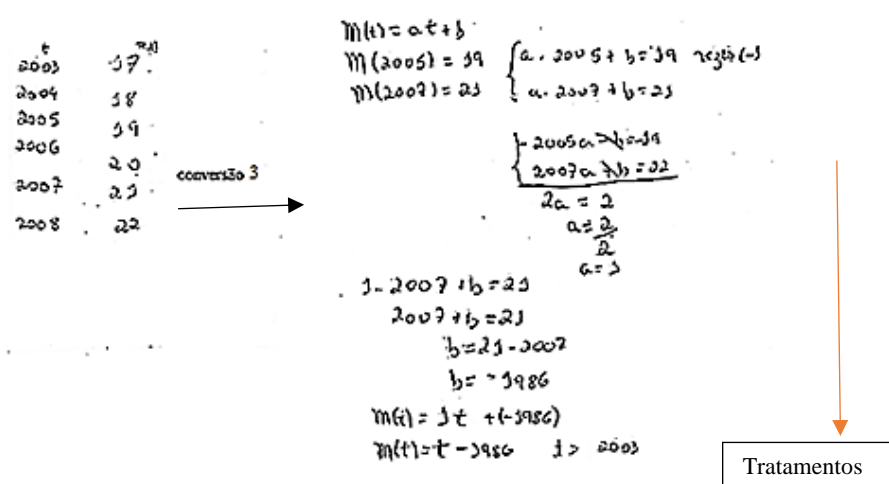 t m(t)
2003 17
2004 18
2005 19
2006 20
2007 21
2008 22
conversão 3
m(t) = at + b
m(2005) = 19
m(2007) = 21
a. 2005 + b = 19
a. 2007 + b = 21
- 2005a - b = -19
2007a + b = 22
2a = 2
a = 2
2
a = 1
1. 2007 + b = 21
2007 + b = 21
b = 21 - 2007
b = - 1986
m(t) = 1t + (-1986)
m(t) = t - 1986 t > 2003
Tratamentos